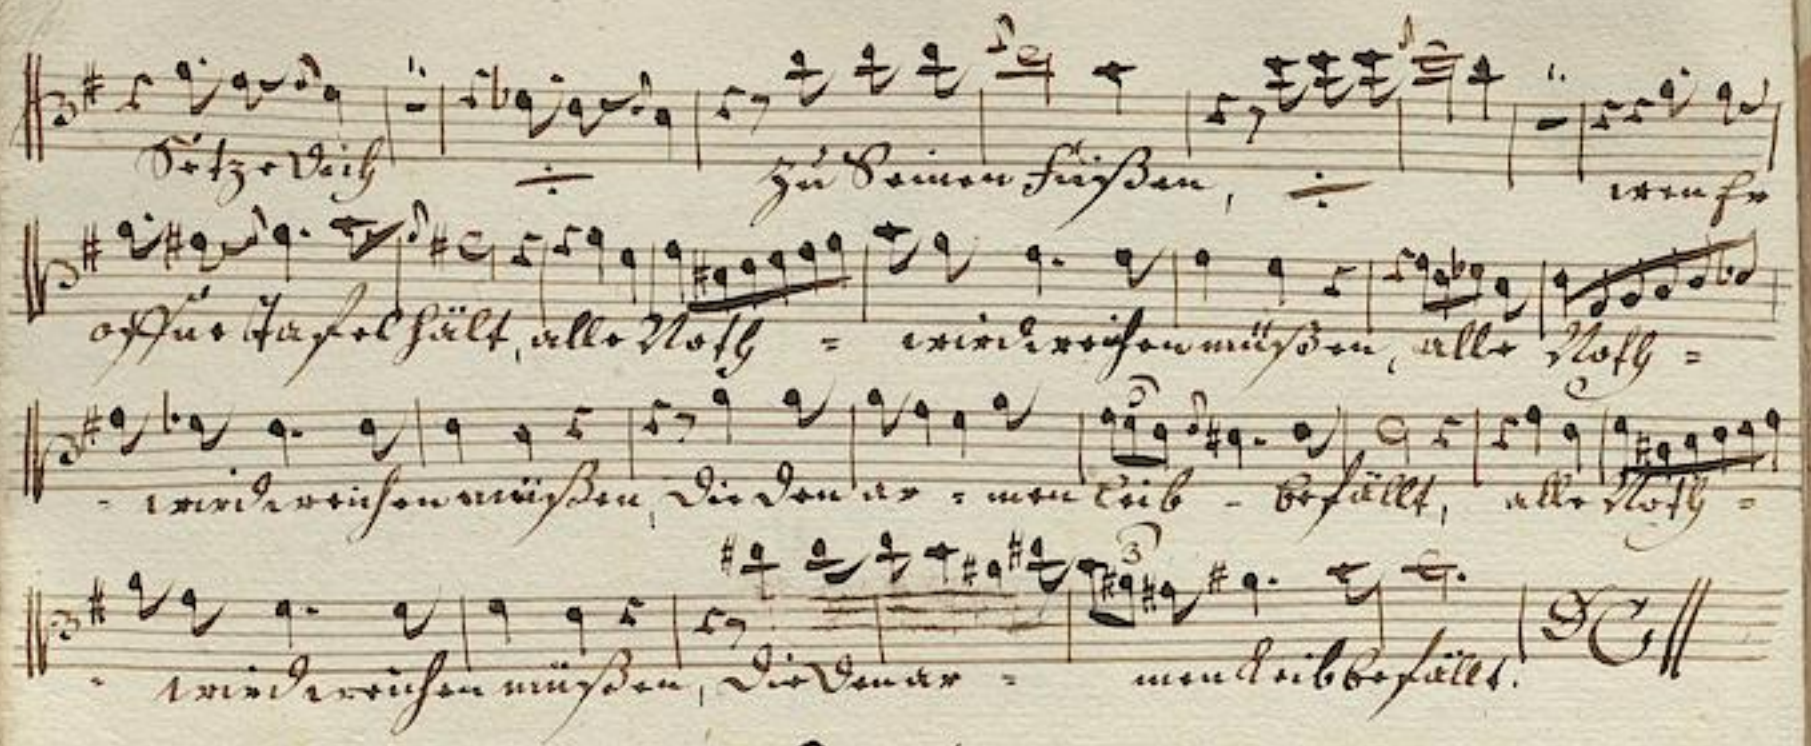 Setze dich ÷ zu Seinen Füßen, ÷ wen Er
offne Tafel hält, alle Noth = wird weichen müßen, alle Noth =
- wird weichen müßen, die den ar = men Leib - befällt, alle Noth =
- wird weichen müßen, die den ar = men Leib befällt.
DC